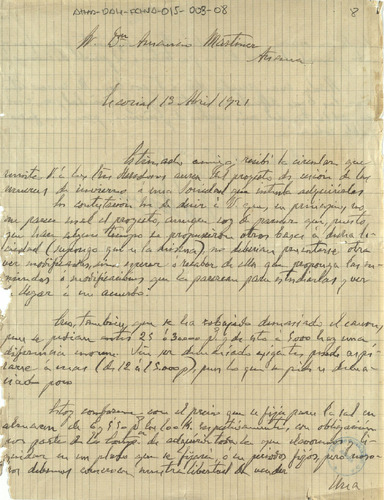 8
Sr. Dn Amancio Martínez
Escorial 13 Abril 1921
Estimado amigo, recibí la circular que
remite V. á los tres del proyecto de cesión de las
mineras de invierno á una Sociedad que intenta adquirirlas
En contestación he de decir á V. que, en principio, no
me parece mal el proyecto, aunque soy de parecer que, puesto
que hace algún tiempo se propusieron otras bases á dicha So-
ciedad (supongo que es la misma), no debieran presentarse otra
vez modificadas, sin esperar á recabar de ellos que propongan las en-
miendas ó modificaciones que la parezcan para estudiarlas y ver
de llegar á un acuerdo.
Creo también que se ha rebajado demasiado el canon,
pues se pedían antes 25 á 30000 y de esto á 5000 hay una
diferencia enorme. Sin ser demasiado exigentes puede aspi-
rarse á más (de 12 á 15.000 p.) pues lo que se pide es dema-
siado poco
Estoy conforme con el precio que se fija para la sal en
almacén de respectivamente, con obligación
por parte de la de adquirir toda la que elaboremos y li-
quidar en un plazo que se fijaría, o en periodos fijos, pero noso-
tros debemos conservar nuestra libertad de vender